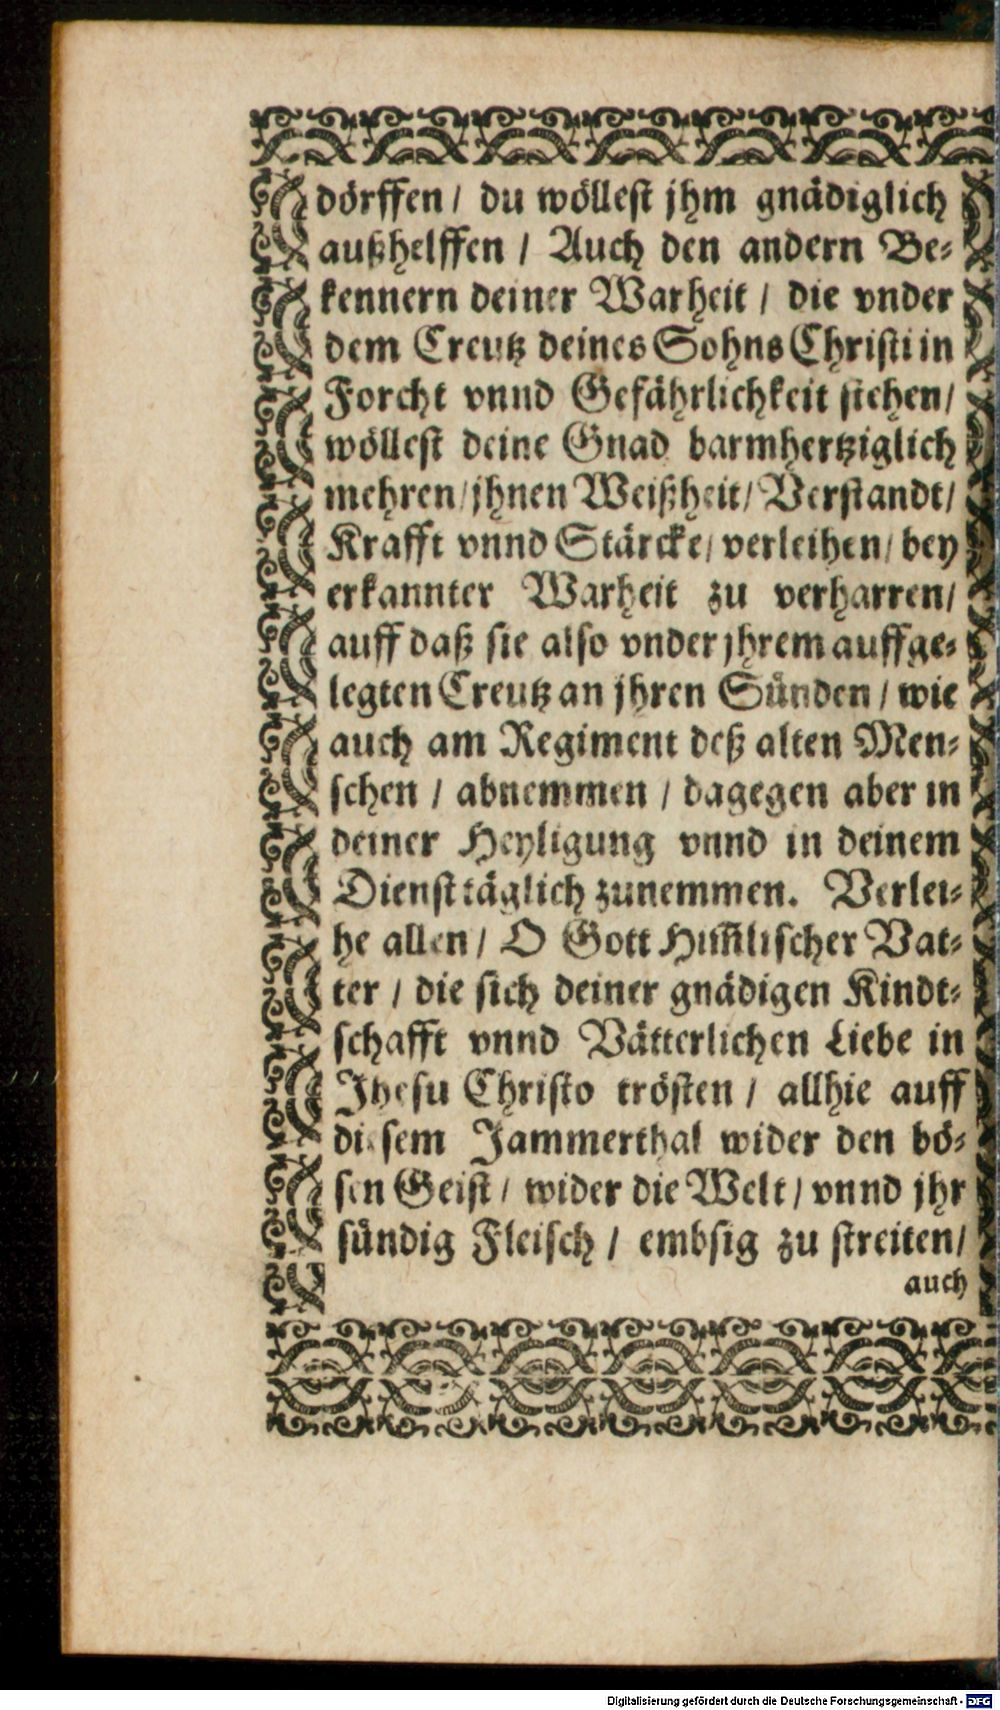 dörffen / du wöllest jhm gnädiglich
außhelffen / Auch den andern Be-
kennern deiner Warheit / die vnder
dem Creutz deines Sohns Christi in
Forcht vnnd Gefährlichkeit stehen /
wöllest deine Gnad barmhertziglich
mehren / jhnen Weißheit / Verstandt /
Krafft vnnd Stärcke / verleihen / bey
erkannter Warheit zu verharren /
auff daß sie also vnder jhrem auffge-
legten Creutz an jhren Sünden / wie
auch am Regiment deß alten Men-
schen / abnemmen / dagegen aber in
deiner Heyligung vnnd in deinem
Dienst täglich zunemmen. Verlei-
he allen / O Gott Him̃lischer Vat-
ter / die sich deiner gnädigen Kindt-
schafft vnnd Vätterlichen Liebe in
Jhesu Christo trösten / allhie auff
disem Jammerthal wider den bö-
sen Geist / wider die Welt / vnnd jhr
sündig Fleisch / embsig zu streiten /
auch
Digitalisierung gefördert durch die Deutsche Forschungsgemeinschaft - DFG